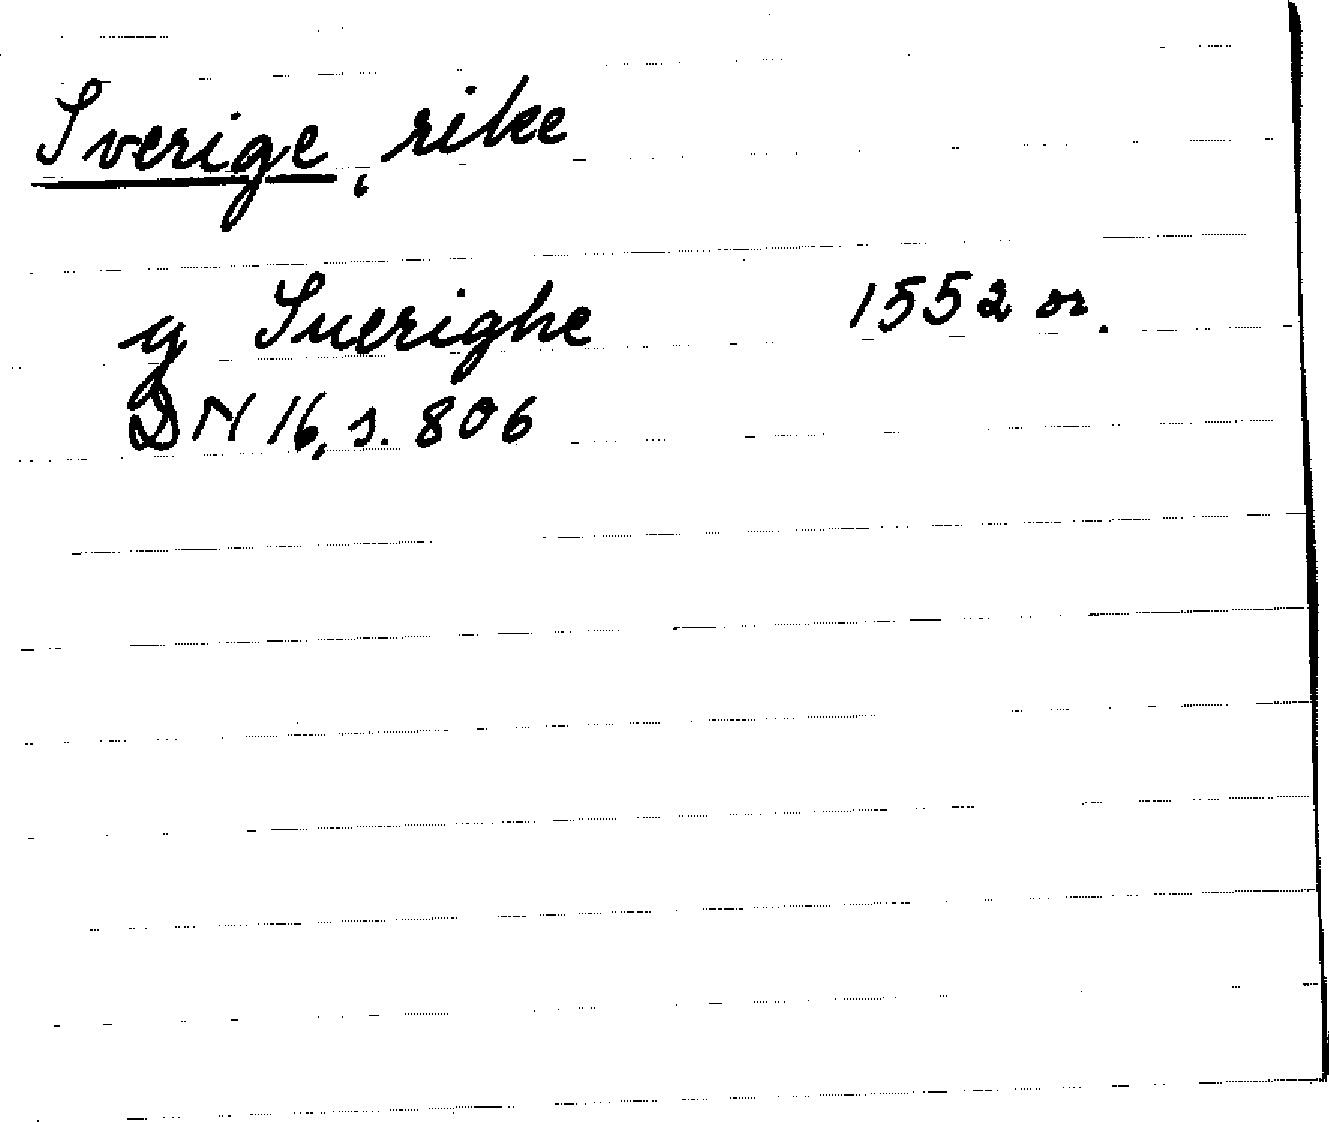 Sverige, rike
g Suerighe 1552 or.
DN 16, s. 806